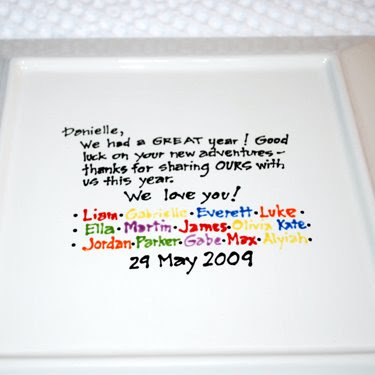 Danielle,
We had a GREAT year! Good
luck on your new adventures-
thanks for sharing OURS with
us this year.
We love you!
• Liam • Gabrielle • Everett • Luke •
• Ella • Martin • James • Olivia • Kate •
• Jordan • Parker • Gabe • Max • Alyiah •
29 May 2009